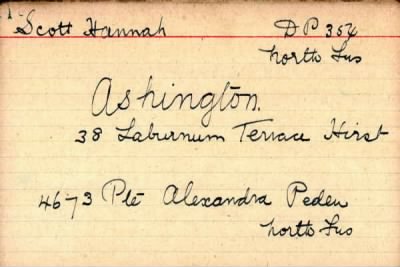 Scott Hannah DP 354
North Fus
Ashington.
38 Laburnum Terrace Hirst
4673 Pte Alexandra Peden
North Fus